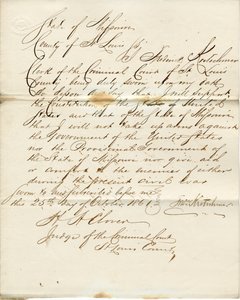 State of Missouri
County of St Louis
Clerk of the Criminal Court of St. Louis
County being duly sworn upon my oath
do depose and say that I will support
the Constitution of the United
States and that of the State of Missouri
that I will not take up arms against
the Government of the United States
nor the Provisional Government of
the State of Missouri nor give aid
or comfort to the enemies of either
during the present civil war
Sworn to and subscribed before me
this 25th day of October 1861
H. A. Clover
Judge of the Criminal Court
St Louis County